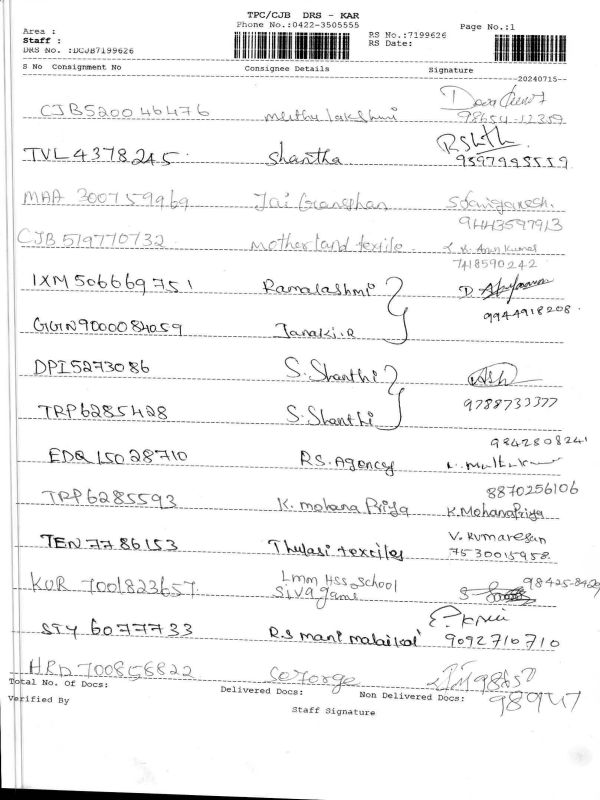 TPC/CJB DRS - KAR
Phone No.:0422-3505555
Page No.:1
Area :
Staff :
DRS No. :DCJB7199626
RS No.:7199626
RS Date:
S No Consignment No Consignee Details Signature
20240715
CJB520046476 muthu lakshmi
98654-12359
TVL 4378245 Shantha 9597995559
MAA 300759969 Jai Ganesh
9443597913
CJB 519770732 motherland textile L.K. Arun Kumar
7418590242
IXM 506669751 Ramalashmi D.
9944918208
GGN900084059 Janaki.R
DPI5273086 S. Shanthi
9788733377
TRP6285428 S. Shanthi
9842808241
EDQ15028710 RS. Agency
8870256106
TRP6285593 K. mohana Priya K.MohanaPriya
TEN 7786153 Thulasi textiles V. Kumaresan
7530015958
KUR 7001823657 Lmm Hss School 98425-8429
STY 6077733 R.S mani malaikai 9092710710
HRD 700856822 George
Total No. Of Docs: Delivered Docs: Non Delivered Docs:
Verified By Staff Signature